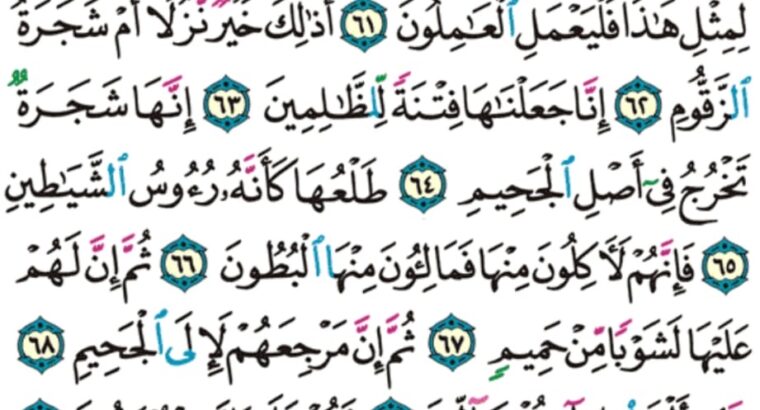 لِمِثْلِ هَـٰذَا فَلْيَعْمَلِ ٱلْعَـٰمِلُونَ ٦١ أَذَٰلِكَ خَيْرٌ نُّزُلًا أَمْ شَجَرَةُ
ٱلزَّقُّومِ ٦٢ إِنَّا جَعَلْنَـٰهَا فِتْنَةً لِّلظَّـٰلِمِينَ ٦٣ إِنَّهَا شَجَرَةٌ
تَخْرُجُ فِىٓ أَصْلِ ٱلْجَحِيمِ ٦٤ طَلْعُهَا كَأَنَّهُۥ رُءُوسُ ٱلشَّيَـٰطِينِ
٦٥ فَإِنَّهُمْ لَـَٔاكِلُونَ مِنْهَا فَمَالِـُٔونَ مِنْهَا ٱلْبُطُونَ ٦٦ ثُمَّ إِنَّ لَهُمْ
عَلَيْهَا لَشَوْبًا مِّنْ حَمِيمٍ ٦٧ ثُمَّ إِنَّ مَرْجِعَهُمْ لَإِلَى ٱلْجَحِيمِ ٦٨